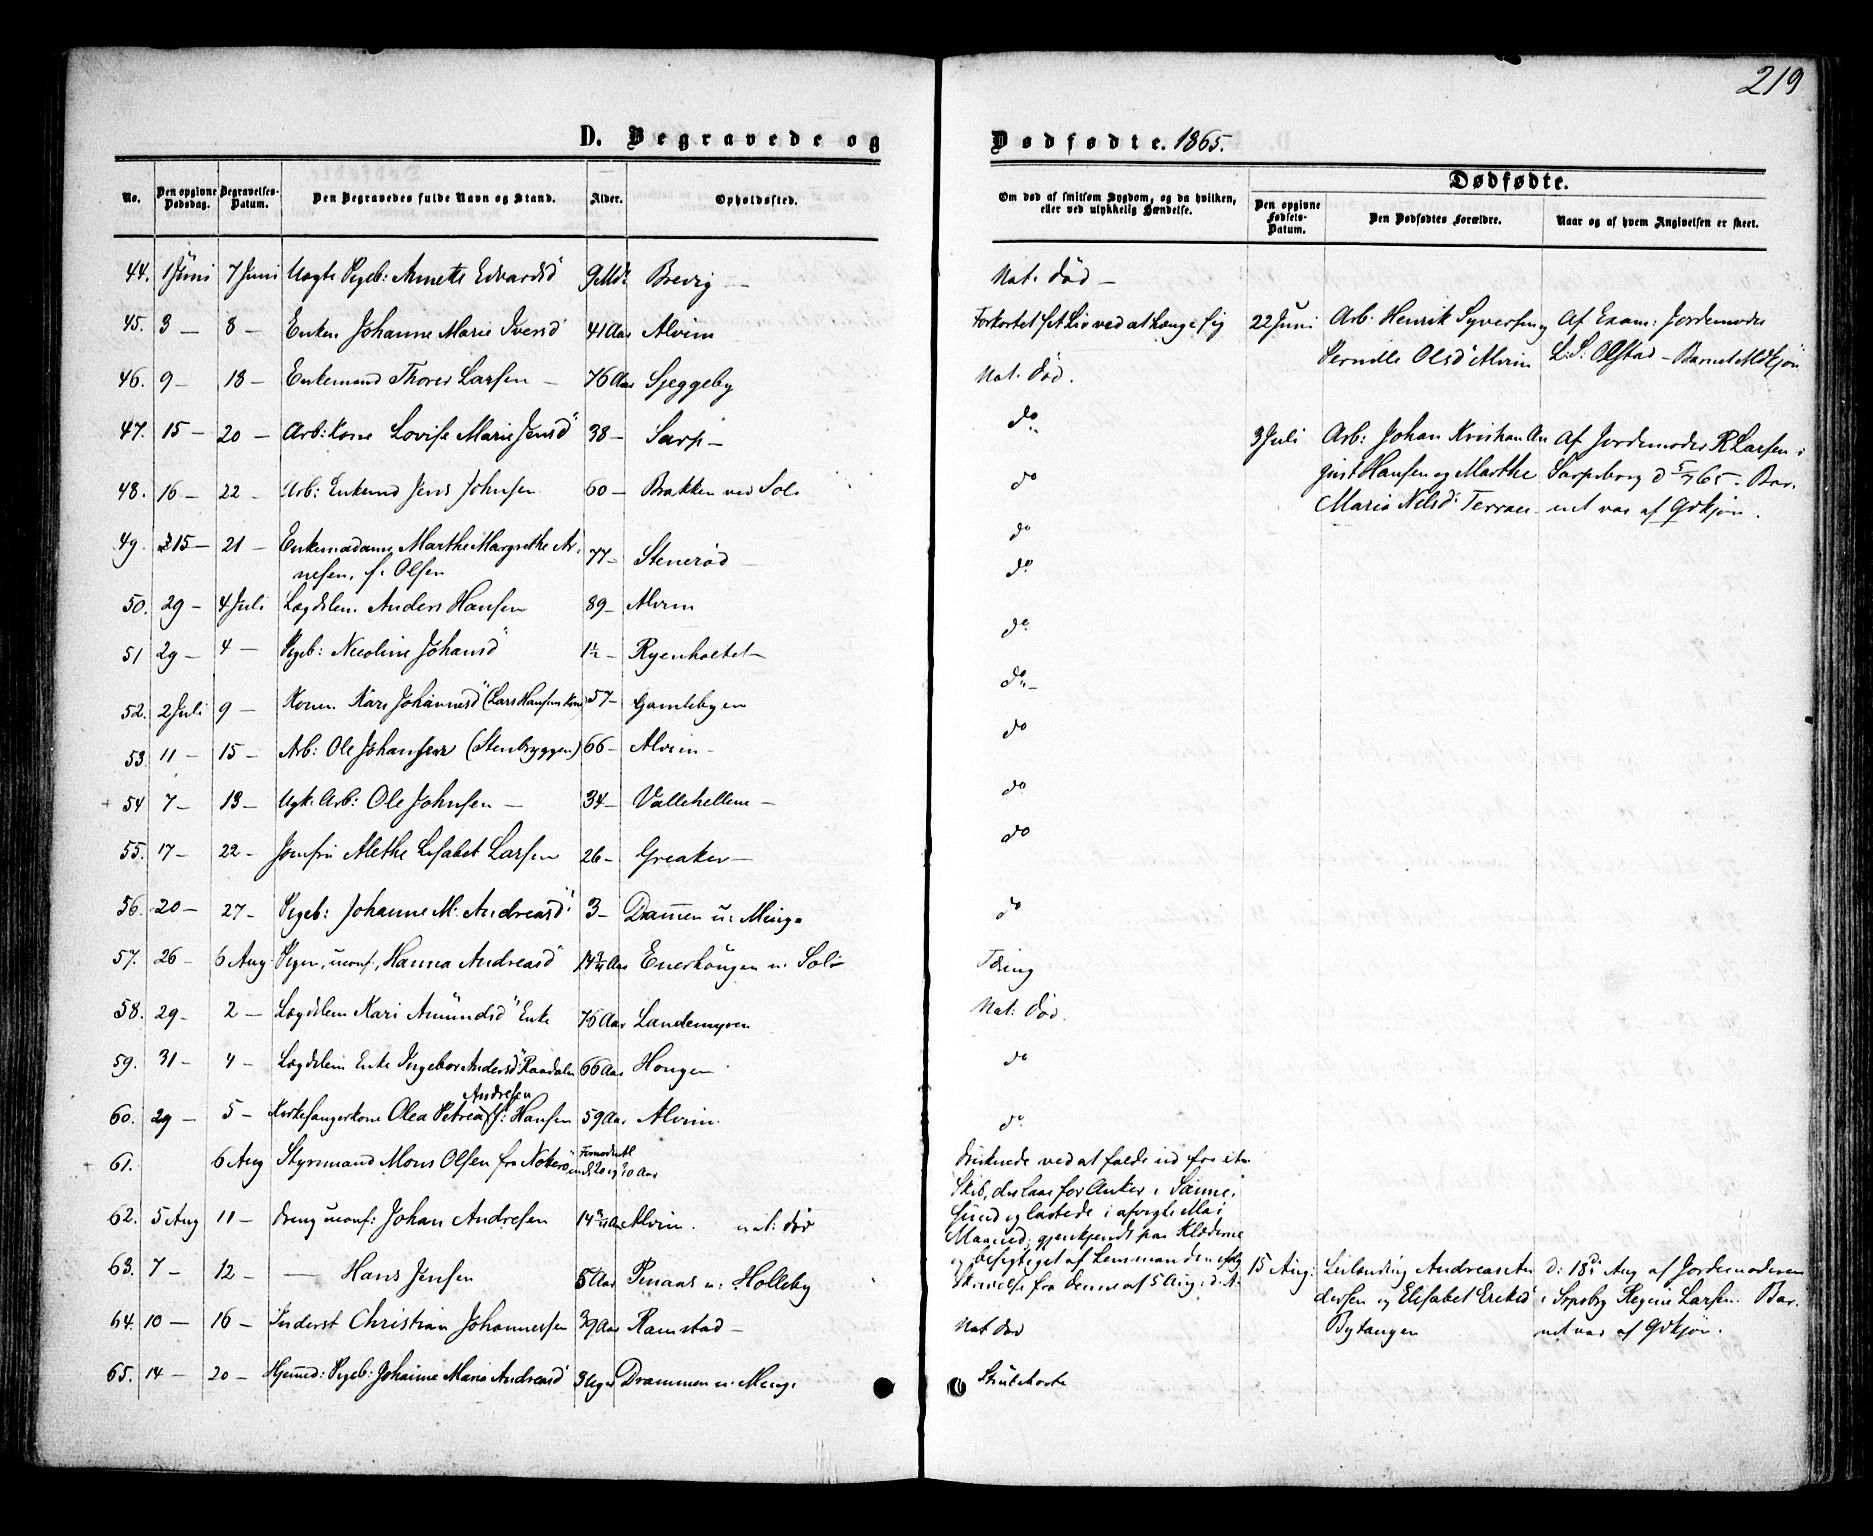 219
D. Begravede og Dødfødte. 1865.
No. Den opgivne Dødsdag. Begravelses-Datum. Den Begravedes fulde Navn og Stand. Alder. Opholdssted. Om død af smitsom Sygdom, og da hvilken, eller ved ulykkelig Hændelse.
Dødfødte.
Den opgivne Fødsels-Datum. Den Dødfødtes Forældre. Naar og af hvem Angivelsen er skeet.
44. 1 Juni 7 Juni Uægte Pigeb: Annette Edvardsd 9 Mdr Brevig — Nat. død —
45. 3 — 8 — Enken Johanne Marie Iversd 41 Aar Alvim Forkortet sit Liv ved at hænge sig
22 Juni Arb: Henrik Syversen og Af Exam: Jordemoder
Pernille Olsd Alvim L. S. Olstad — Barnet Mdkjøn
46. 9 — 18 — Enkemand Thorer Larsen — 76 Aar Sjeggeby Nat. død.
47. 15 — 20 — Arb: Kone Lovise Marie Jensd 38 — Sarp — do
3 Juli Arb: Johan Kristian Au Af Jordemoder R Larsen i
gust Hansen og Marthe Sarpsborg d 5/7 65. Bar.
Marie Nilsd: Terræe net var af Qvkjøn.
48. 16 — 22 — Arb: Enkemd Jens Johnsen 60 — Brakken ved Soli do
49. 15 — 21 — Enkemadame Marthe Margrethe Ar. 77 — Stenerød — do
nesen, f. Olsen do
50. 29 — 4 Juli Lægdslem Anders Hansen 89 — Alvim
51 29 — 4 — Pigeb: Nicoline Johansd 1½ — Ryenholtet — do
52. 2 Juli 9 — Konen Kari Johannesd (Lars Hansens Kone) 57 — Gamlebyen do —
53. 11 — 15 — Arb: Ole Johansen (Stenbryggen) 66 — Alvim — do
54 7 — 13 — Ugk. Arb: Ole Johnsen — 34 — Vallehellene — do
55. 17 — 22 — Jomfru Alethe Lisabet Larsen 26 — Greaker — do
56. 20 — 27 — Pigeb: Johanne M. Andreasd. 3 — Dammen u: Minge do
57. 26 — 6 Aug Pigen, uconf, Hanna Andreasd Aar Enerhougen u. Soli Tæring
58. 29 — 2 — Lægdslem Kari Amundsd Enke 76 Aar Landemyren Nat: død.
59. 31 — 4 — Lægdslem Enke Ingebor Andersd Raadalen 66 Aar Hougen do
Andresen
60. 29 — 5 — Kirkesangerkone Olea Petrea f: Hansen 59 Aar Alvim. do
61. 6 Aug Styrmand Mons Olsen fra Nøterø Formodentl
20 Aar
druknede ved at falde ud fra et
Skib, der laae for Anker i Sanne
sund og lastede i afvigte Mai
Maaned; gjenkjendt paa Klæderne
og besigtiget af Lensmanden
Skrivelse fra denne af 5 Aug: d. A.
62. 5 Aug 11 — Dreng uconf: Johan Andresen Alvim. nat: død
63. 7 — 12 — — Hans Jensen 5 Aar Penaas u: Holleby
15 Aug: Leilænding Andreas An d: 18de Aug af Jordemoderen
dersen og Elisabet Eriksd i Srpsbrg Regine Larsen. Bar.
Bytangen net var af Qvkjøn.
64. 10 — 16 — Inderst Christian Johannessen 39 Aar Ramstad — Nat død
65. 14 — 20 — Hjemmed: Pigeb: Johanne Marie Andreasd 3 Uger Drammen u: Minge Strubehoste